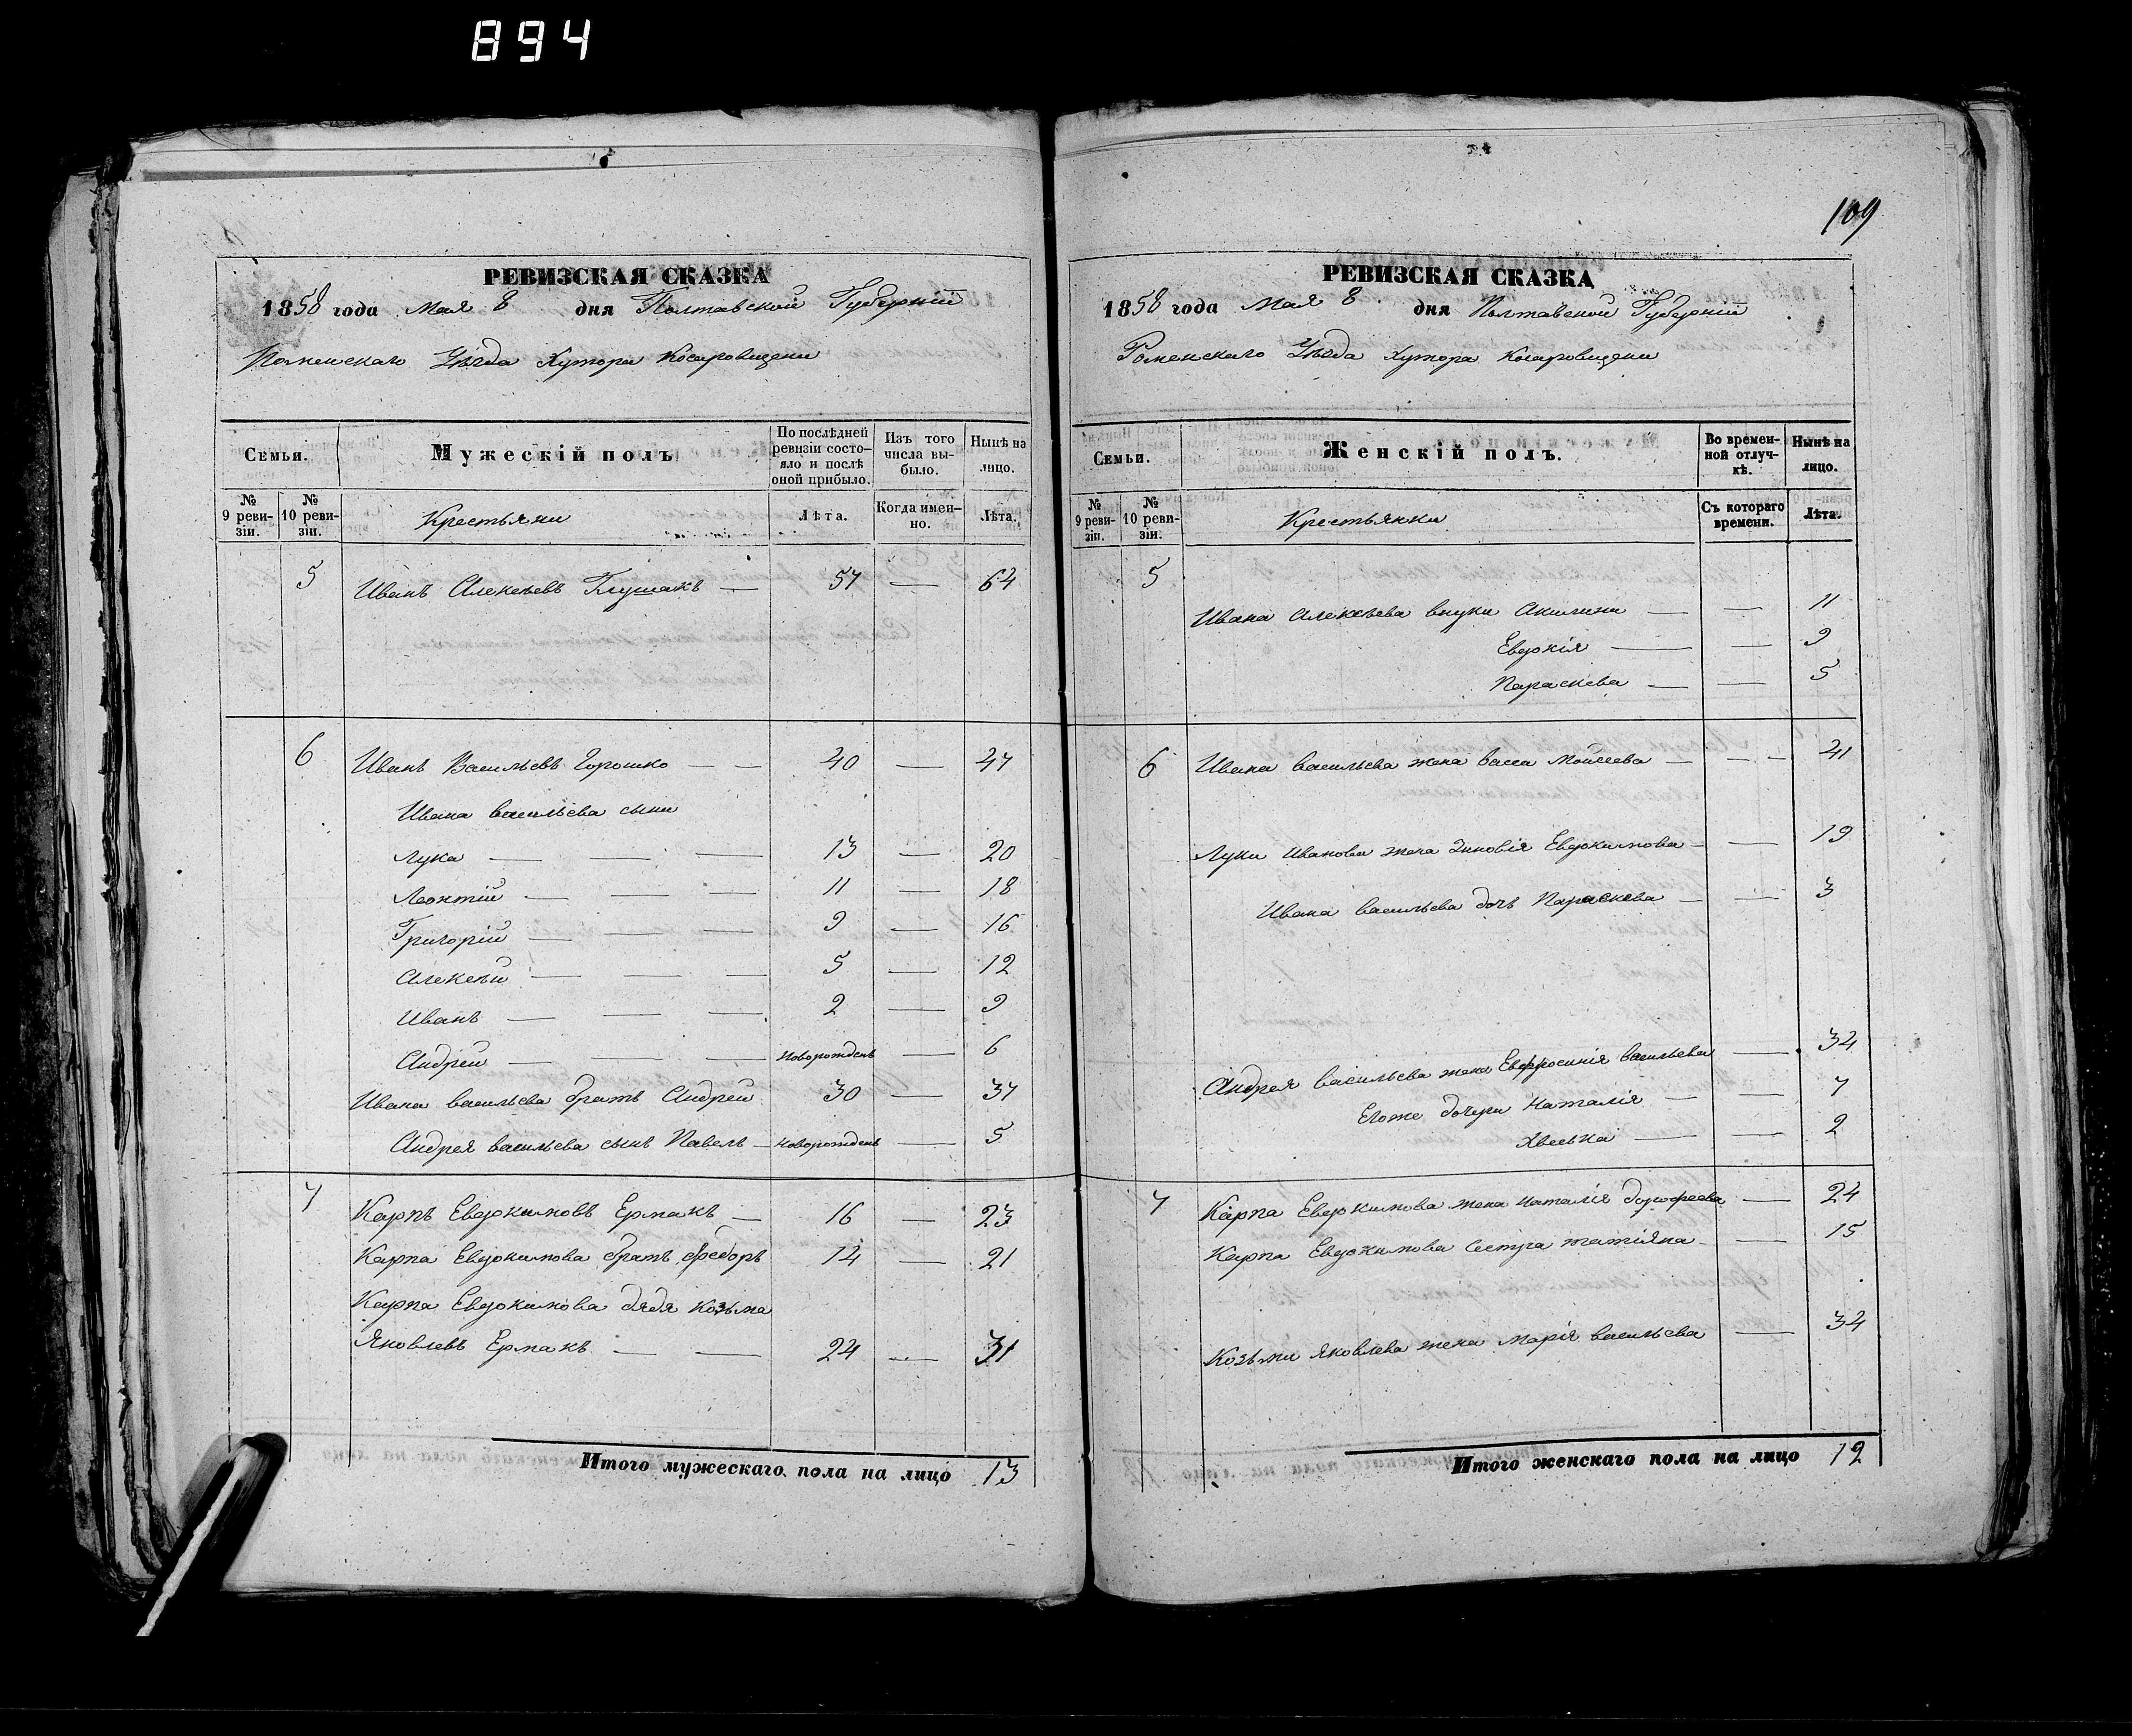 894
РЕВИЗСКАЯ СКАЗКА
1858 года Мая 8 дня Полтавской Губерніи
Роменскаго Уѣзда Хутора Косаровщени
Семьи.
Мужескій полъ
По послѣдней ревизіи состояло и послѣ оной прибыло.
Изъ того числа выбыло.
Нынѣ на лицо.
№ 9 ревизіи.
№ 10 ревизіи.
Крестьяни
Лѣта.
Когда именно.
Лѣта.
5 Иванъ Алексѣевъ Глушакъ — 57 — 64
6 Иванъ Васильевъ Горошко — — 40 — 47
Ивана васильева сыни
Лука — — — 13 — 20
Леонтій — — — 11 — 18
Григорій — — — 9 — 16
Алексѣй — — — 5 — 12
Иванъ — — — 2 — 9
Андрей — — — новорожденъ — 6
Ивана васильева братъ Андрей 30 — 37
Андрея васильева сынъ Павелъ — новорожденъ — 5
7 Карпъ Евдокимовъ Ермакъ — 16 — 23
Карпа Евдокимова братъ Федоръ 14 — 21
Карпа Евдокимова дядя Козьма
Яковлевъ Ермакъ — — 24 — 31
Итого мужескаго пола на лицо 13
109
РЕВИЗСКАЯ СКАЗКА
1858 года Мая 8 дня Полтавской Губерніи
Роменскаго Уѣзда Хутора Косаровщени
Семьи.
Женскій полъ.
Во временной отлучкѣ.
Нынѣ на лицо.
№ 9 ревизіи.
№ 10 ревизіи.
Крестьянки
Съ котораго времени.
Лѣта.
5
Ивана Алексѣева внуки Акилина — — 11
Евдокія — — 9
Параскева — — 5
6 Ивана васильева жена васса Мойсеева — — - 41
Луки Иванова жена Зиновія Евдокимова — — 19
Ивана васильева дочь Параскева — — 3
Андрея васильева жена Евфросинія васильева — 34
Егоже дочери Наталія — — 7
Хвеська — — 2
7 Карпа Евдокимова жена Наталія дорофеева — 24
Карпа Евдокимова сестра татіяна — — 15
Козьми Яковлева жена Марія васильева — 34
Итого женскаго пола на лицо 12